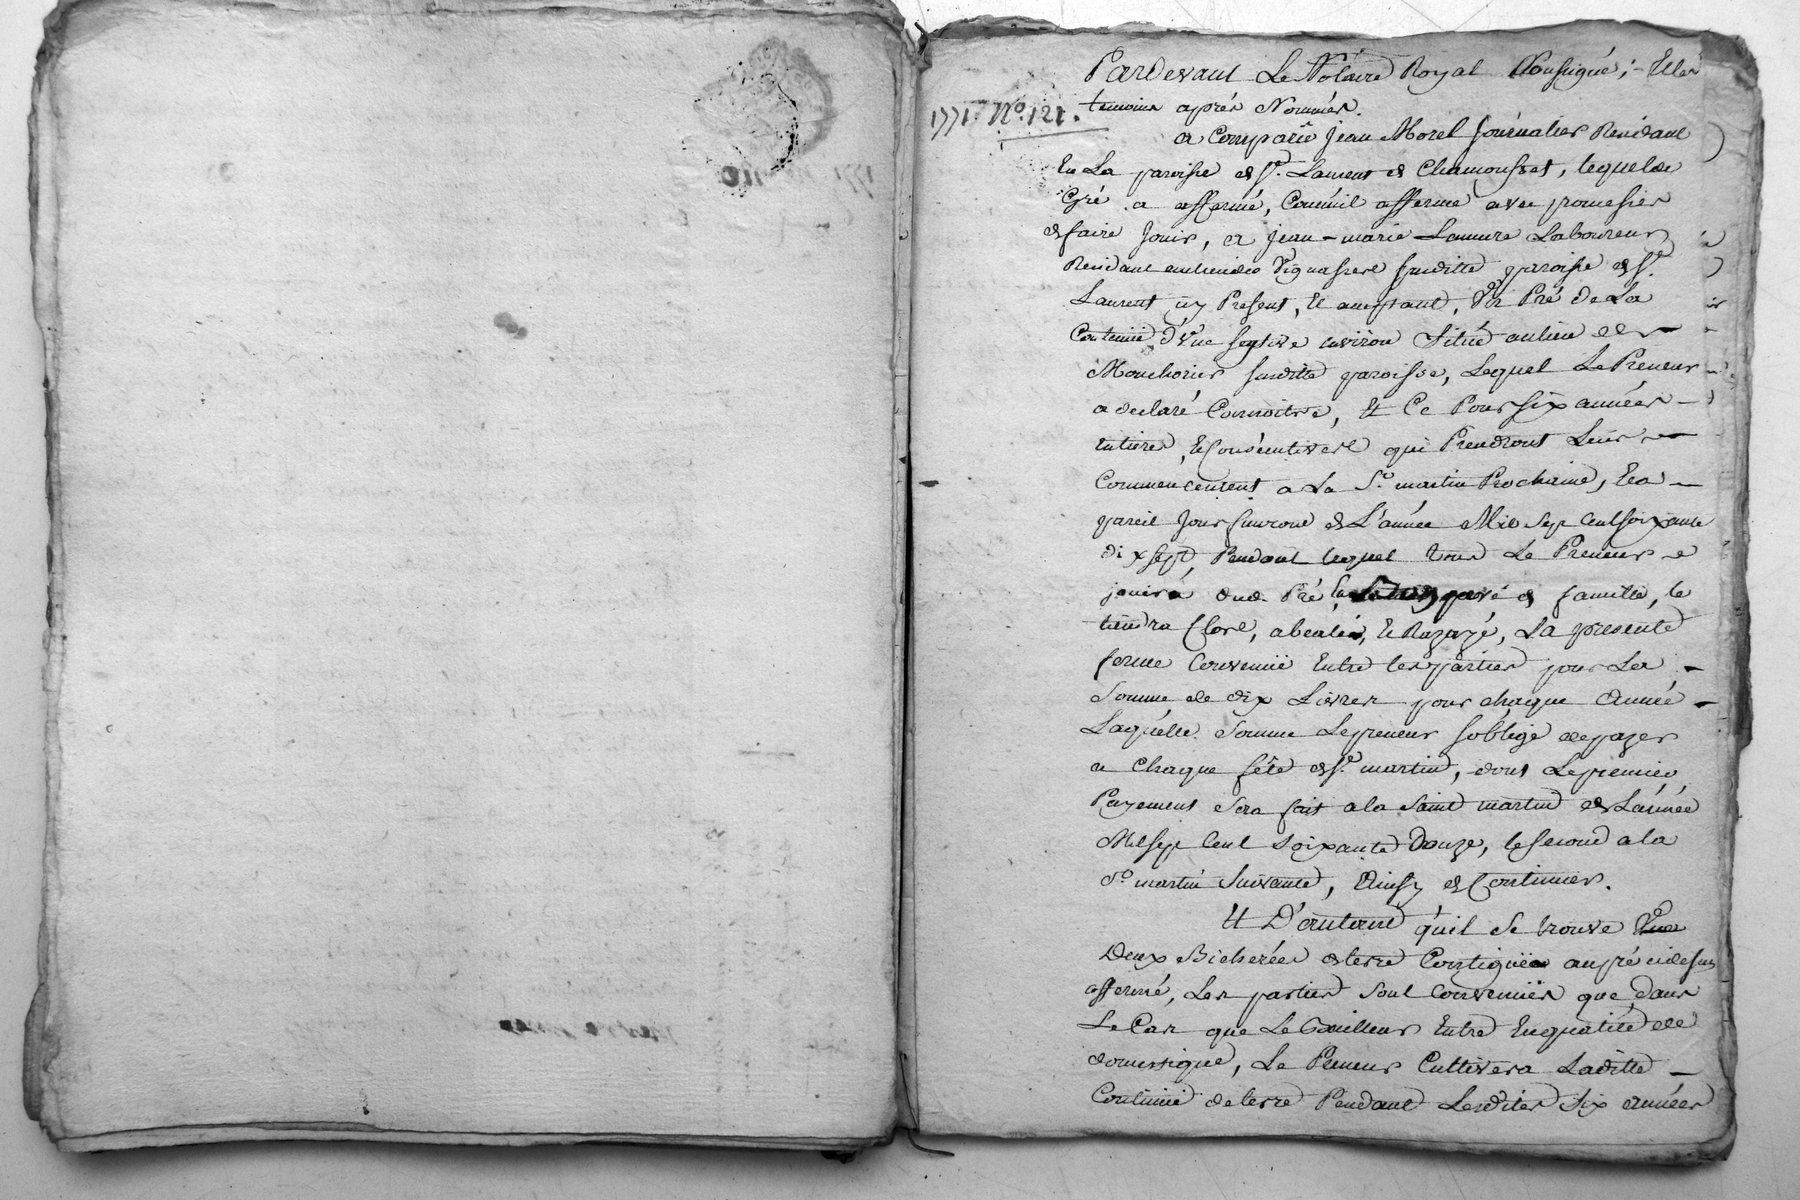 Pardevant Le Notaire Royal Soussigné, Et les
temoins aprés Nommés.
1771 No. 121.
a Comparû Jean Morel Journalier Residant
En La paroisse de St. Laurent de Chamousset, lequel de
Gré a affermé, Comme il afferme avec promesses
de faire Jouir, a Jean-marie Lamure Laboureur
Residant au lieu de susditte paroisse de St.
Laurent icy Present, Et acceptant, Un Pré de La
Contenüe d'Une septive environ Situé au lieu de
Mouchorier susditte paroisse, Lequel Le Preneur
a declaré Connoitre, Et Ce Pour six années
Entieres, Et Consécutives qui Prendront Leur
Commencement a La St. martin Prochaine, Et a
pareil Jour finiront de L'année Mil Sept Cent soixante
dix sept, Pendant lequel tems Le Preneur
jouira dud. Pré pere de famille, le
tiendra Clos, Et Razayé, La presente
ferme Convenüe Entre les parties pour La
Somme de dix Livres pour chaque Année
Laquelle Somme Le preneur s'oblige de payer
a Chaque fête de St. martin, dont Le premier
Payement Sera fait a la Saint martin de L'année
Mil sept Cent Soixante Douze, le second a la
St. martin Suivante, Ainsy de Continuer.
Et D'autant qu'il Se trouve Une
Deux Bicherées de terre Contigüe au pré cidessus
affermé, Les parties Sont Convenües que dans
Le Cas que Le Bailleur Entre En qualité de
domestique, Le Preneur Cultivera Laditte
Contenüe de terre Pendant Lesdites Six années